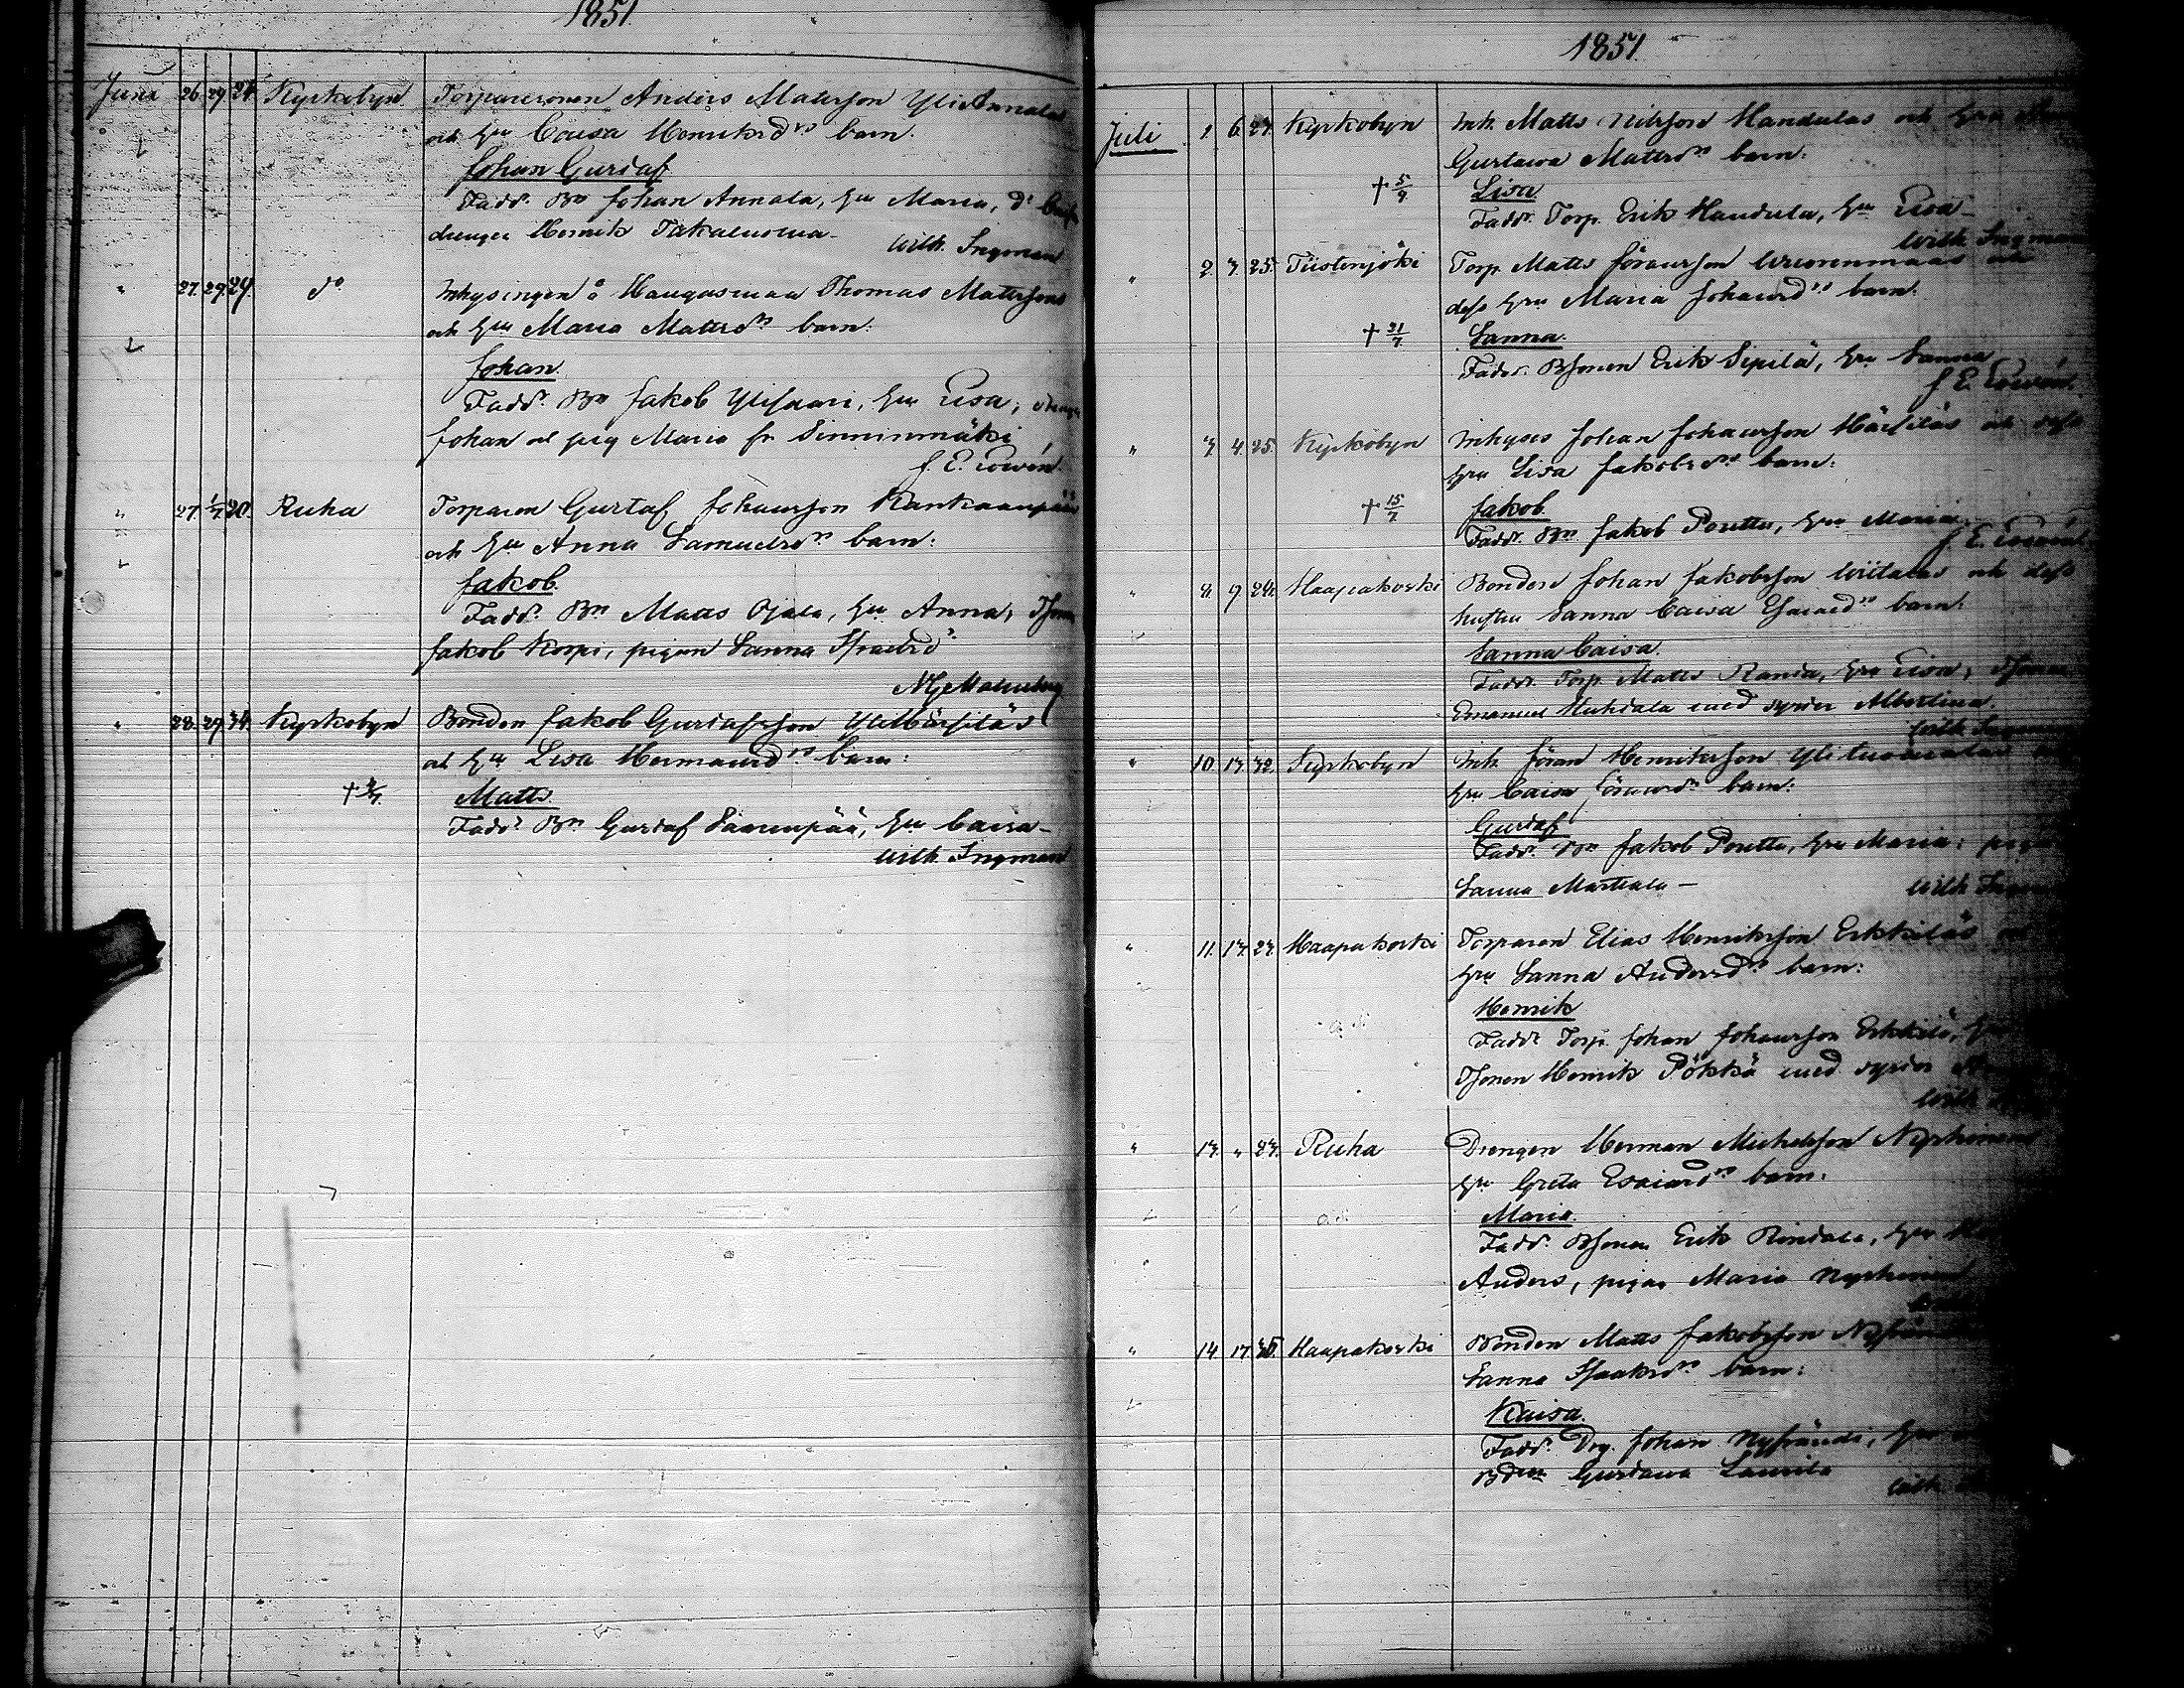 1851
Juni 26. 29. 21. Kyrkobyn Torparesonen Anders Matsson YliAnnalas
och hu Caisa Henriksdr barn.
Johan Gustaf
Fadd. Bn Johan Annala, hu Maria, d:
drengen Henrik Takaluoma
Wilh. Ingman
" 27. 29. 29. do Inhysingen å Haugasmaa Thomas Mattssons
och hu Maria Mattsdr barn:
Johan.
Fadd. Bn Jakob Ylisaari, hu Lisa;
Johan och pig Maria fr. Sinninmäki
J. E.
" 27. 1/7 20. Ruha Torparen Gustaf Johansson Kankaanpää
och hu Anna Samuelsdr barn:
Jakob.
Fadd. Bn Matts Ojala, hu Anna,
Jakob Korpi, pigan Sanna Israelsd
" 28. 29. 34. Kyrkobyn Bonden Jakob Gustafsson YliHärsiläs
och hu Lisa Hermansdr barn:
† 2/7 Matts.
Fadd. Bn Gustaf Saarenpää, hu Caisa
Wilh. Ingman
1851.
Juli 1. 6. 27. Kyrkobyn Inh. Matts Nilsson Handulas och hu
Gustawa Mattsdr barn:
† 5/9 Lisa
Fadd. Torp. Erik Handula, hu Lisa
Wilh. Ingman
" 2. 3. 25. Tiistenjoki Torp. Matts Göransson och
dess hu Maria Johansdr barn:
† 31/7 Sanna.
Fadd. Bsonen Erik Sipilä, hu Sanna
J. E.
" 3. 4. 25. Kyrkobyn Inhyses Johan Johansson Härsiläs och dess
hu Lisa Jakobsdr barn:
† 15/7 Jakob.
Fadd. Bn Jakob Poutto, hu Maria.
J. E.
" 8. 9. 24. Haapakoski Bonden Johan Jakobsson Wiitalas och dess
hustru Sanna Caisa Esaiædr barn:
Sanna Caisa.
Fadd. Torp. Matts Randa, hu Lisa;
Emanuel Huhtala med syster Albertina.
Wilh.
" 10. 13. 32. Kyrkobyn Inh. Göran Henriksson Ylituomalas
hu Caisa Göransdr barn:
Gustaf
Fadd. Bn Jakob Poutto, hu Maria;
Sanna Marttala
Wilh.
" 11. 13. 23. Haapakoski Torparen Elias Henriksson Erkkiläs
hu Sanna Andersdr barn:
Henrik
Fadd. Torp. Johan Johansson Erkkilä,
Tsonen Henrik Pökkä med syster
Wilh.
" 13. " 23. Ruha Drengen Herman Michelsson
hu Greta Esaiasdr barn:
Maria.
Fadd. Bsonen Erik Rindala, hu
Anders, pigan Maria
" 14. 17. 35. Haapakoski Bonden Matts Jakobsson
Sanna Isaaksdr barn:
Kaisa.
Fadd. Drg. Johan
Gustawa Laurila
Wilh.